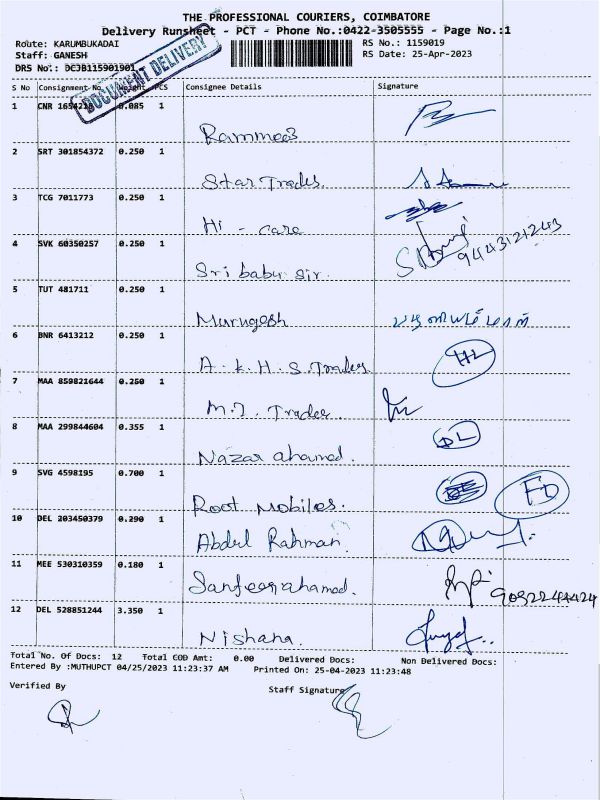 THE PROFESSIONAL COURIERS, COIMBATORE
Delivery Runsheet - PCT - Phone No.:0422-3505555 - Page No.:1
Route: KARUMBUKADAI
RS No.: 1159019
Staff: GANESH
RS Date: 25-Apr-2023
DRS No.: DCJB115901901
DOCUMENT DELIVERY
S No Consignment No. Weight PCS Consignee Details Signature
1 CNR 0.085 1
Rammees
2 SRT 301854372 0.250 1
Star Trades.
3 TCG 7011773 0.250 1
Hi - care
4 SVK 60350257 0.250 1
Sri babu sir. 9443121243
5 TUT 481711 0.250 1
Murugesh பழனியம்மாள்
6 BNR 6413212 0.250 1
A. k. H. S. Trades
7 MAA 859821644 0.250 1
M.J. Trades.
8 MAA 299844604 0.355 1
Nazar ahamed. DL
9 SVG 4598195 0.700 1
Root Mobiles. FD
10 DEL 203450379 0.290 1
Abdul Rahman.
11 MEE 530310359 0.180 1
ahamed. 9082244424
12 DEL 528851244 3.350 1
Nishana.
Total No. Of Docs: 12 Total COD Amt: 0.00 Delivered Docs: Non Delivered Docs:
Entered By :MUTHUPCT 04/25/2023 11:23:37 AM Printed On: 25-04-2023 11:23:48
Verified By
Staff Signature